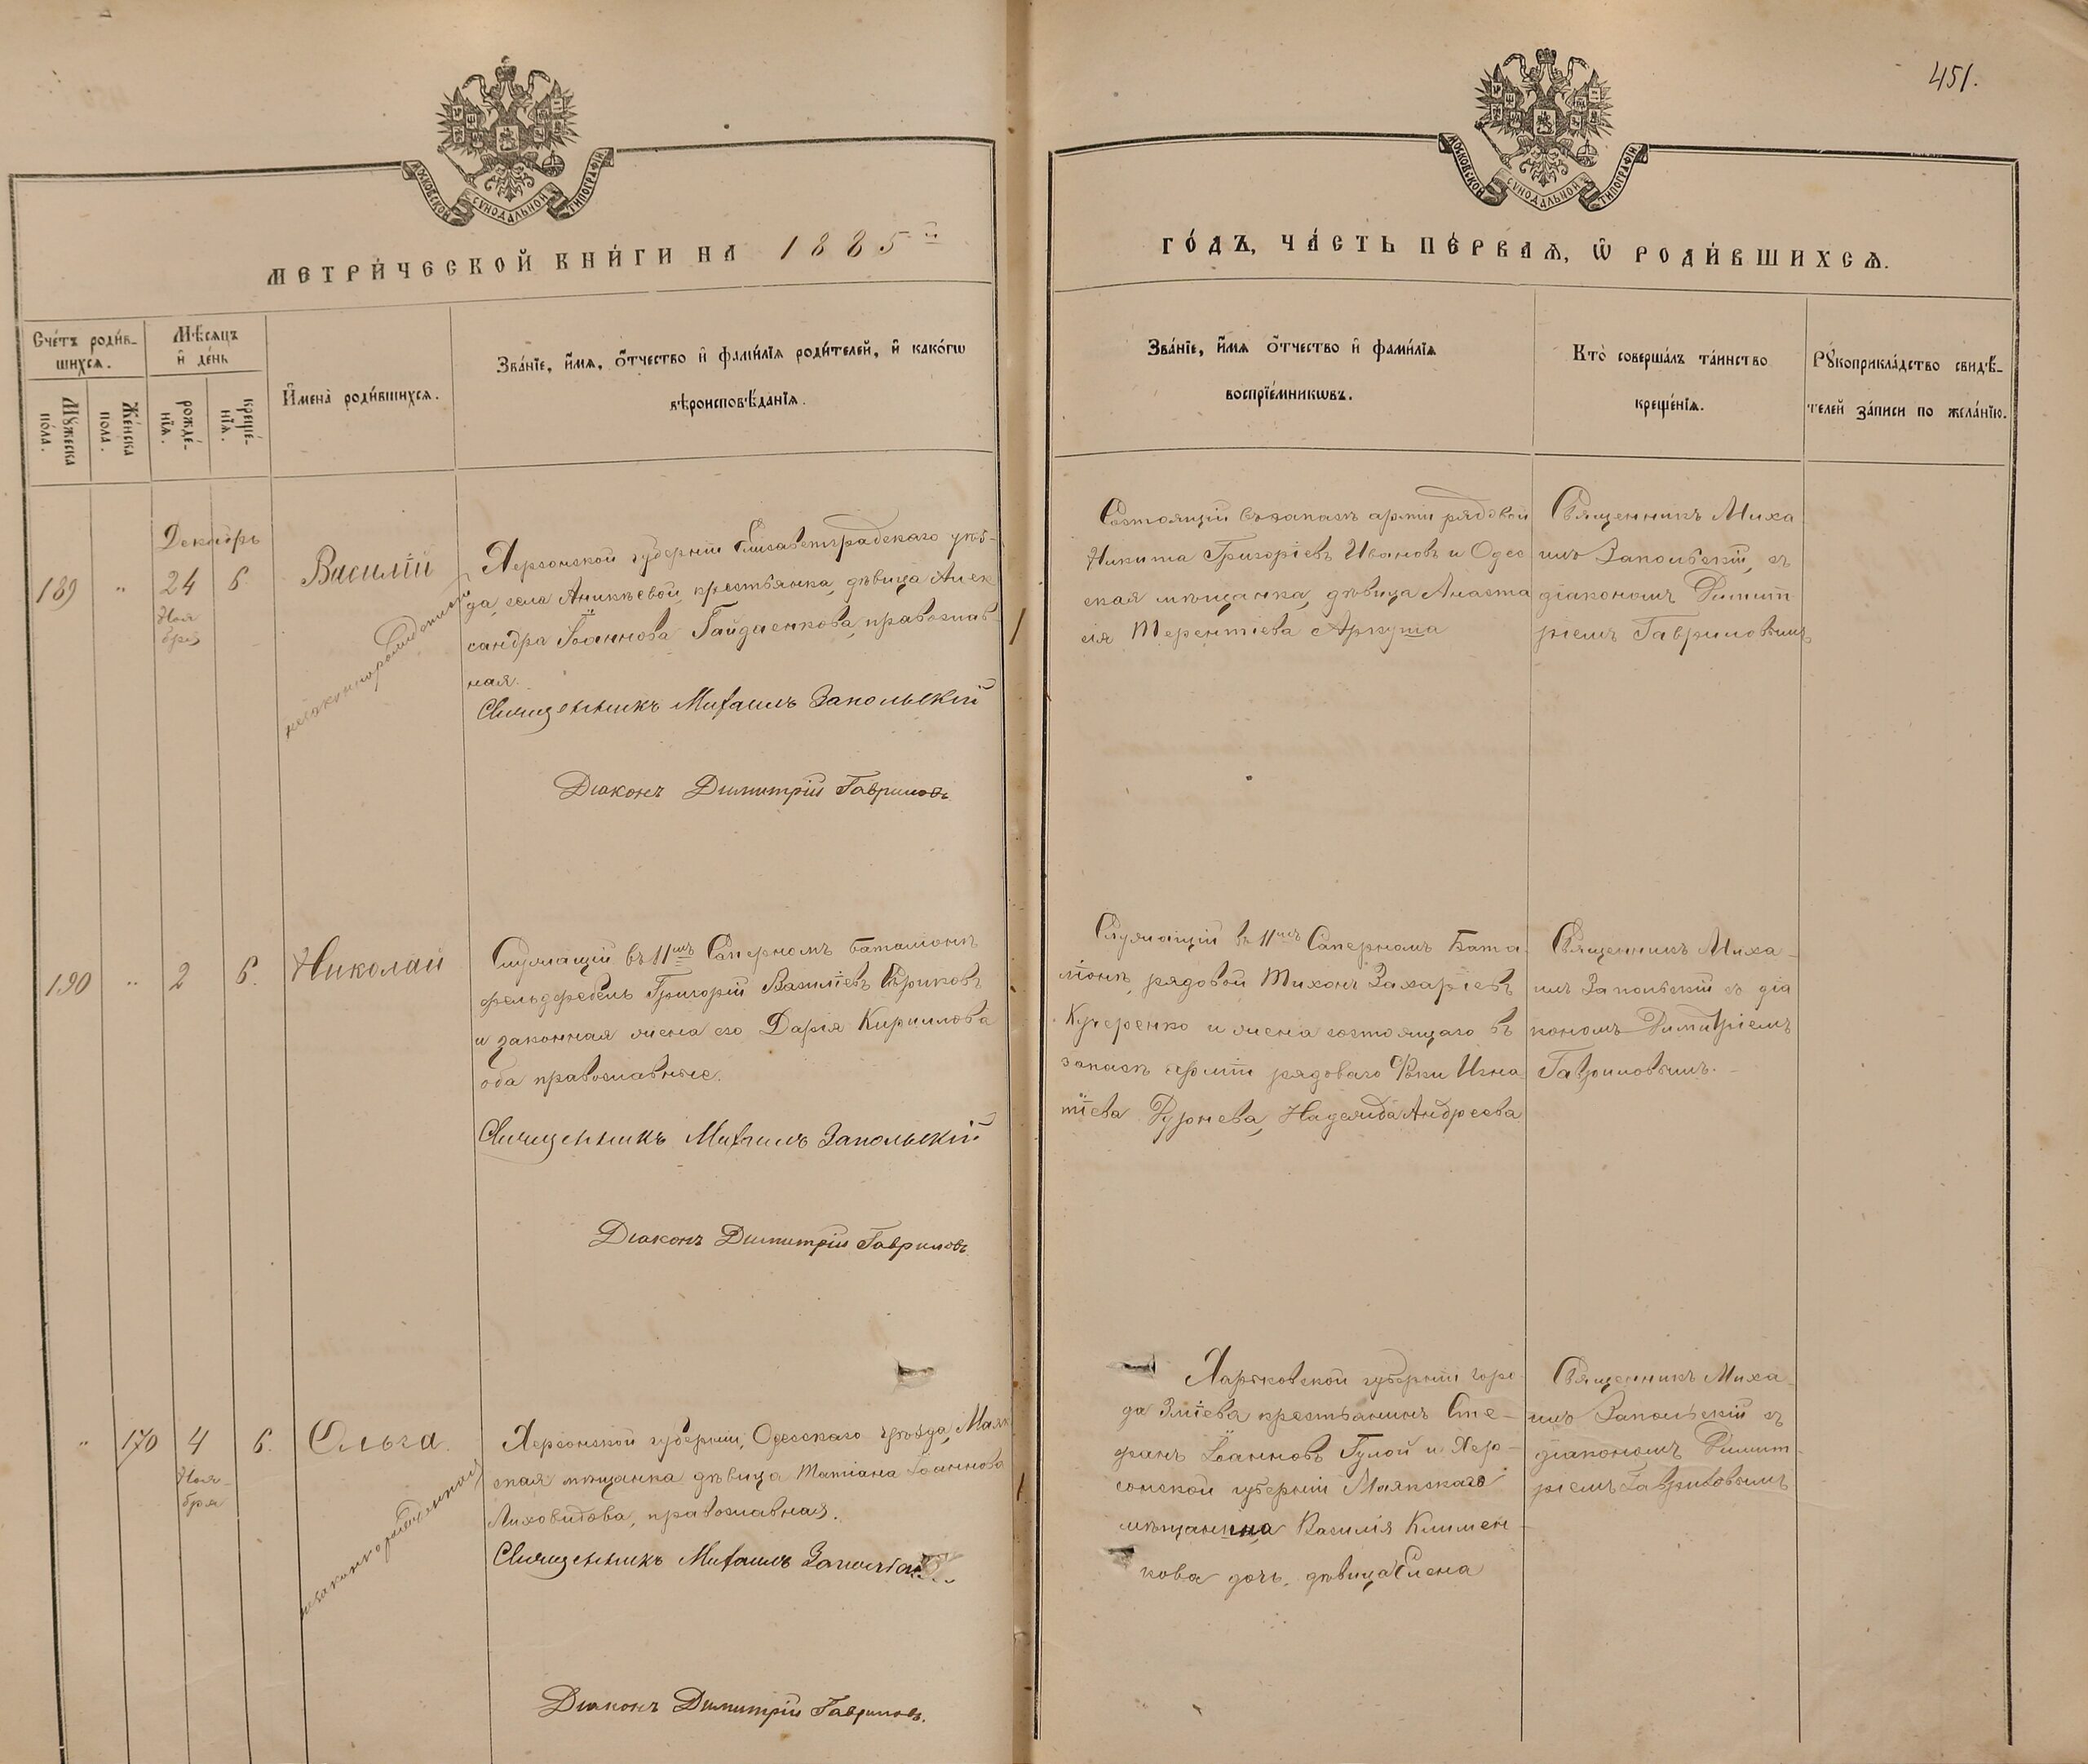 451.
МОСКОВСКОЙ СѴНОДАЛЬНОЙ ТИПОГРАФІИ.
МОСКОВСКОЙ СѴНОДАЛЬНОЙ ТИПОГРАФІИ.
МЕТРИ́ЧЕСКОЙ КНИ́ГИ НА 1885 й
ГО́ДЪ, ЧА́СТЬ ПЕ́РВАѦ, Ѡ҆ РОДИ́ВШИХСѦ.
Сче́тъ роди́в-
шихсѧ.
Мꙋ́жеска
по́ла.
Же́нска
пола.
Мѣ́сѧцъ
и҆ де́нь
рожде́-
нїѧ.
креще́-
нїѧ.
И҆мена̀ роди́вшихсѧ.
Зва́нїе, и҆́мѧ, ѻ҆́тчество и҆ фами́лїѧ роди́телей, и҆ како́гѡ
вѣроисповѣ́данїѧ.
Зва́нїе, и҆́мѧ ѻ҆́тчество и҆ фами́лїѧ
воспрїе́мникѡвъ.
Кто̀ соверша́лъ та́инство
креще́нїѧ.
Рꙋкоприкла́дство свидѣ́-
телей за́писи по жела́нїю.
Декабрь
189 " 24 6 Василій
Ноя
бря
незаконнорожденный
Херсонской губерніи Елисаветградскаго уѣз-
да, села Аникѣевой, крестьянка, дѣвица Алек
сандра Іоаннова Гайдаенкова, православ-
ная.
Священникъ Михаилъ Запольскій
Діаконъ Димитрій Гавриловъ
Состоящій въ запасѣ арміи рядовой
Никита Григоріевъ Ивановъ и Одес
ская мѣщанка, дѣвица Анаста
сія Терентіева Аркуша
Священникъ Миха
илъ Запольскій, съ
діакономъ Димит
ріемъ Гавриловымъ
190 " 2 6. Николай
Служащій въ 11мъ Саперномъ баталіонѣ
фельдфебель Григорій Василіевъ
и законная жена его Дарія Кириллова
оба православные.
Священникъ Михаилъ Запольскій
Діаконъ Димитрій Гавриловъ.
Служащій въ 11мъ Саперномъ Бата-
ліонѣ, рядовой Тихонъ Захаріевъ
Кучеренко и жена состоящаго въ
запасѣ арміи рядоваго Игна
тіева Дурнева, Надежда Андреева
Священникъ Миха-
илъ Запольскій съ діа
кономъ Димитріемъ
Гавриловымъ.
" 170 4 6. Ольга.
Ноя-
бря
незаконнорожденная
Херсонской губерніи, Одесскаго уѣзда, Маяк
ская мѣщанка дѣвица Татіана Іоаннова
Лиховидова, православная.
Священникъ Михаилъ
Діаконъ Димитрій Гавриловъ.
Харьковской губерніи горо-
да Зміева крестьянинъ Сте-
фанъ Іоанновъ Гулой и Хер-
сонской губерніи Маякскаго
мѣщанина Василія Климен-
кова дочь, дѣвица Елена
Священникъ Миха-
илъ Запольскій съ
діакономъ Димит-
ріемъ Гавриловымъ